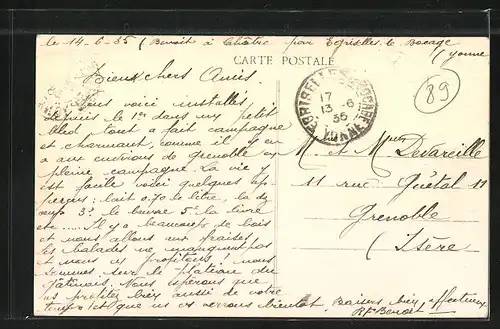 le 14-6-35 (Benoit à Châtre par Egriselles le Bocage
(Yonne
CARTE POSTALE
Bien chers Amis.
Nous voici installés
depuis le 1er dans un petit
bled tout à fait campagne
et charmant, comme il y en
a aux environs de Grenoble en
pleine campagne. La vie y
est facile voici quelques
lait 0.70 le litre, la dz
3f le beurre 5f la livre
etc..... Il y a beaucoup de bois
et nous allons aux fraises,
les balades ne manquent pas
et nous en profitons! nous
sommes sur le plateau du
Gâtinais. Nous espérons que
vs profitez bien aussi de votre
temps et que ns vs verrons bientôt. Baisers bien affectueux
Benoit
EGRISELLES-LE-BOCAGE
17
13-6
35
YONNE
89
M. et Mme Devareille
11 rue Guétal 11
Grenoble
(Isère)